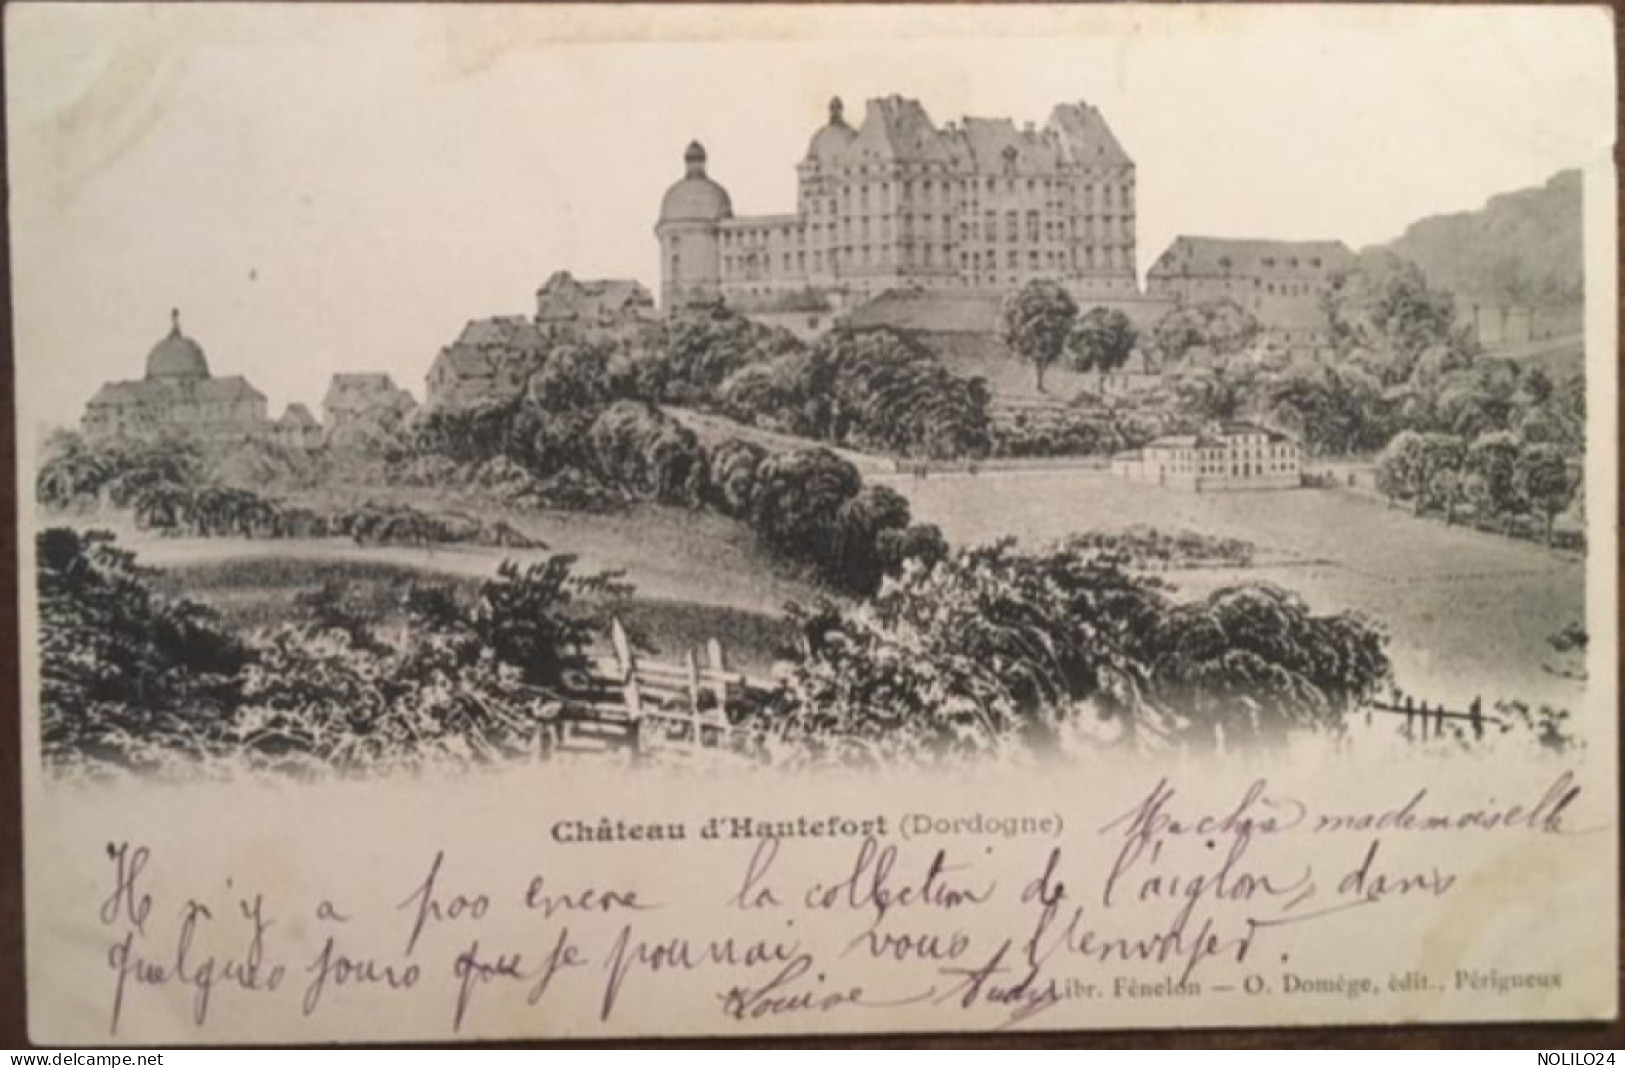 Château d'Hautefort (Dordogne)
Ma chère mademoiselle
Il n'y a pas encore la collection de l'aiglon, dans
quelques jours que je pourrai vous l'envoyer.
Louise
Libr. Fénelon — O. Domège, édit., Périgueux
www.delcampe.net
NOLILO24